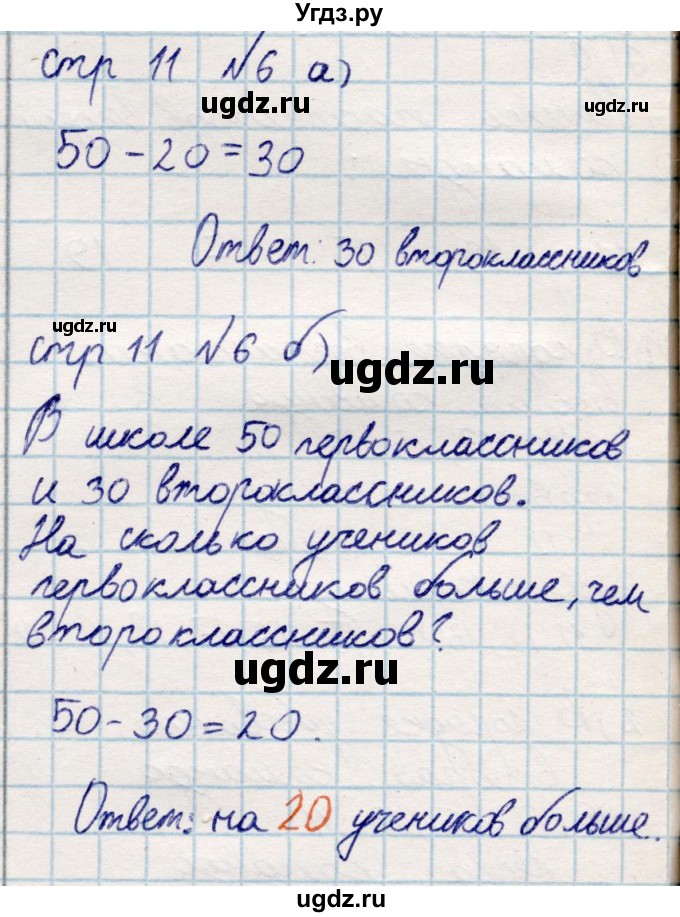 Угдз.ру
стр 11 №6 а)
ugdz.ru
ugdz.ru
50-20=30
Ответ: 30 второклассников
ugdz.ru
стр 11 №6 б)
ugdz.ru
В школе 50 первоклассников
и 30 второклассников.
На сколько учеников
первоклассников больше, чем
второклассников?
ugdz.ru
50-30=20.
Ответ: на 20 учеников больше.
ugdz.ru